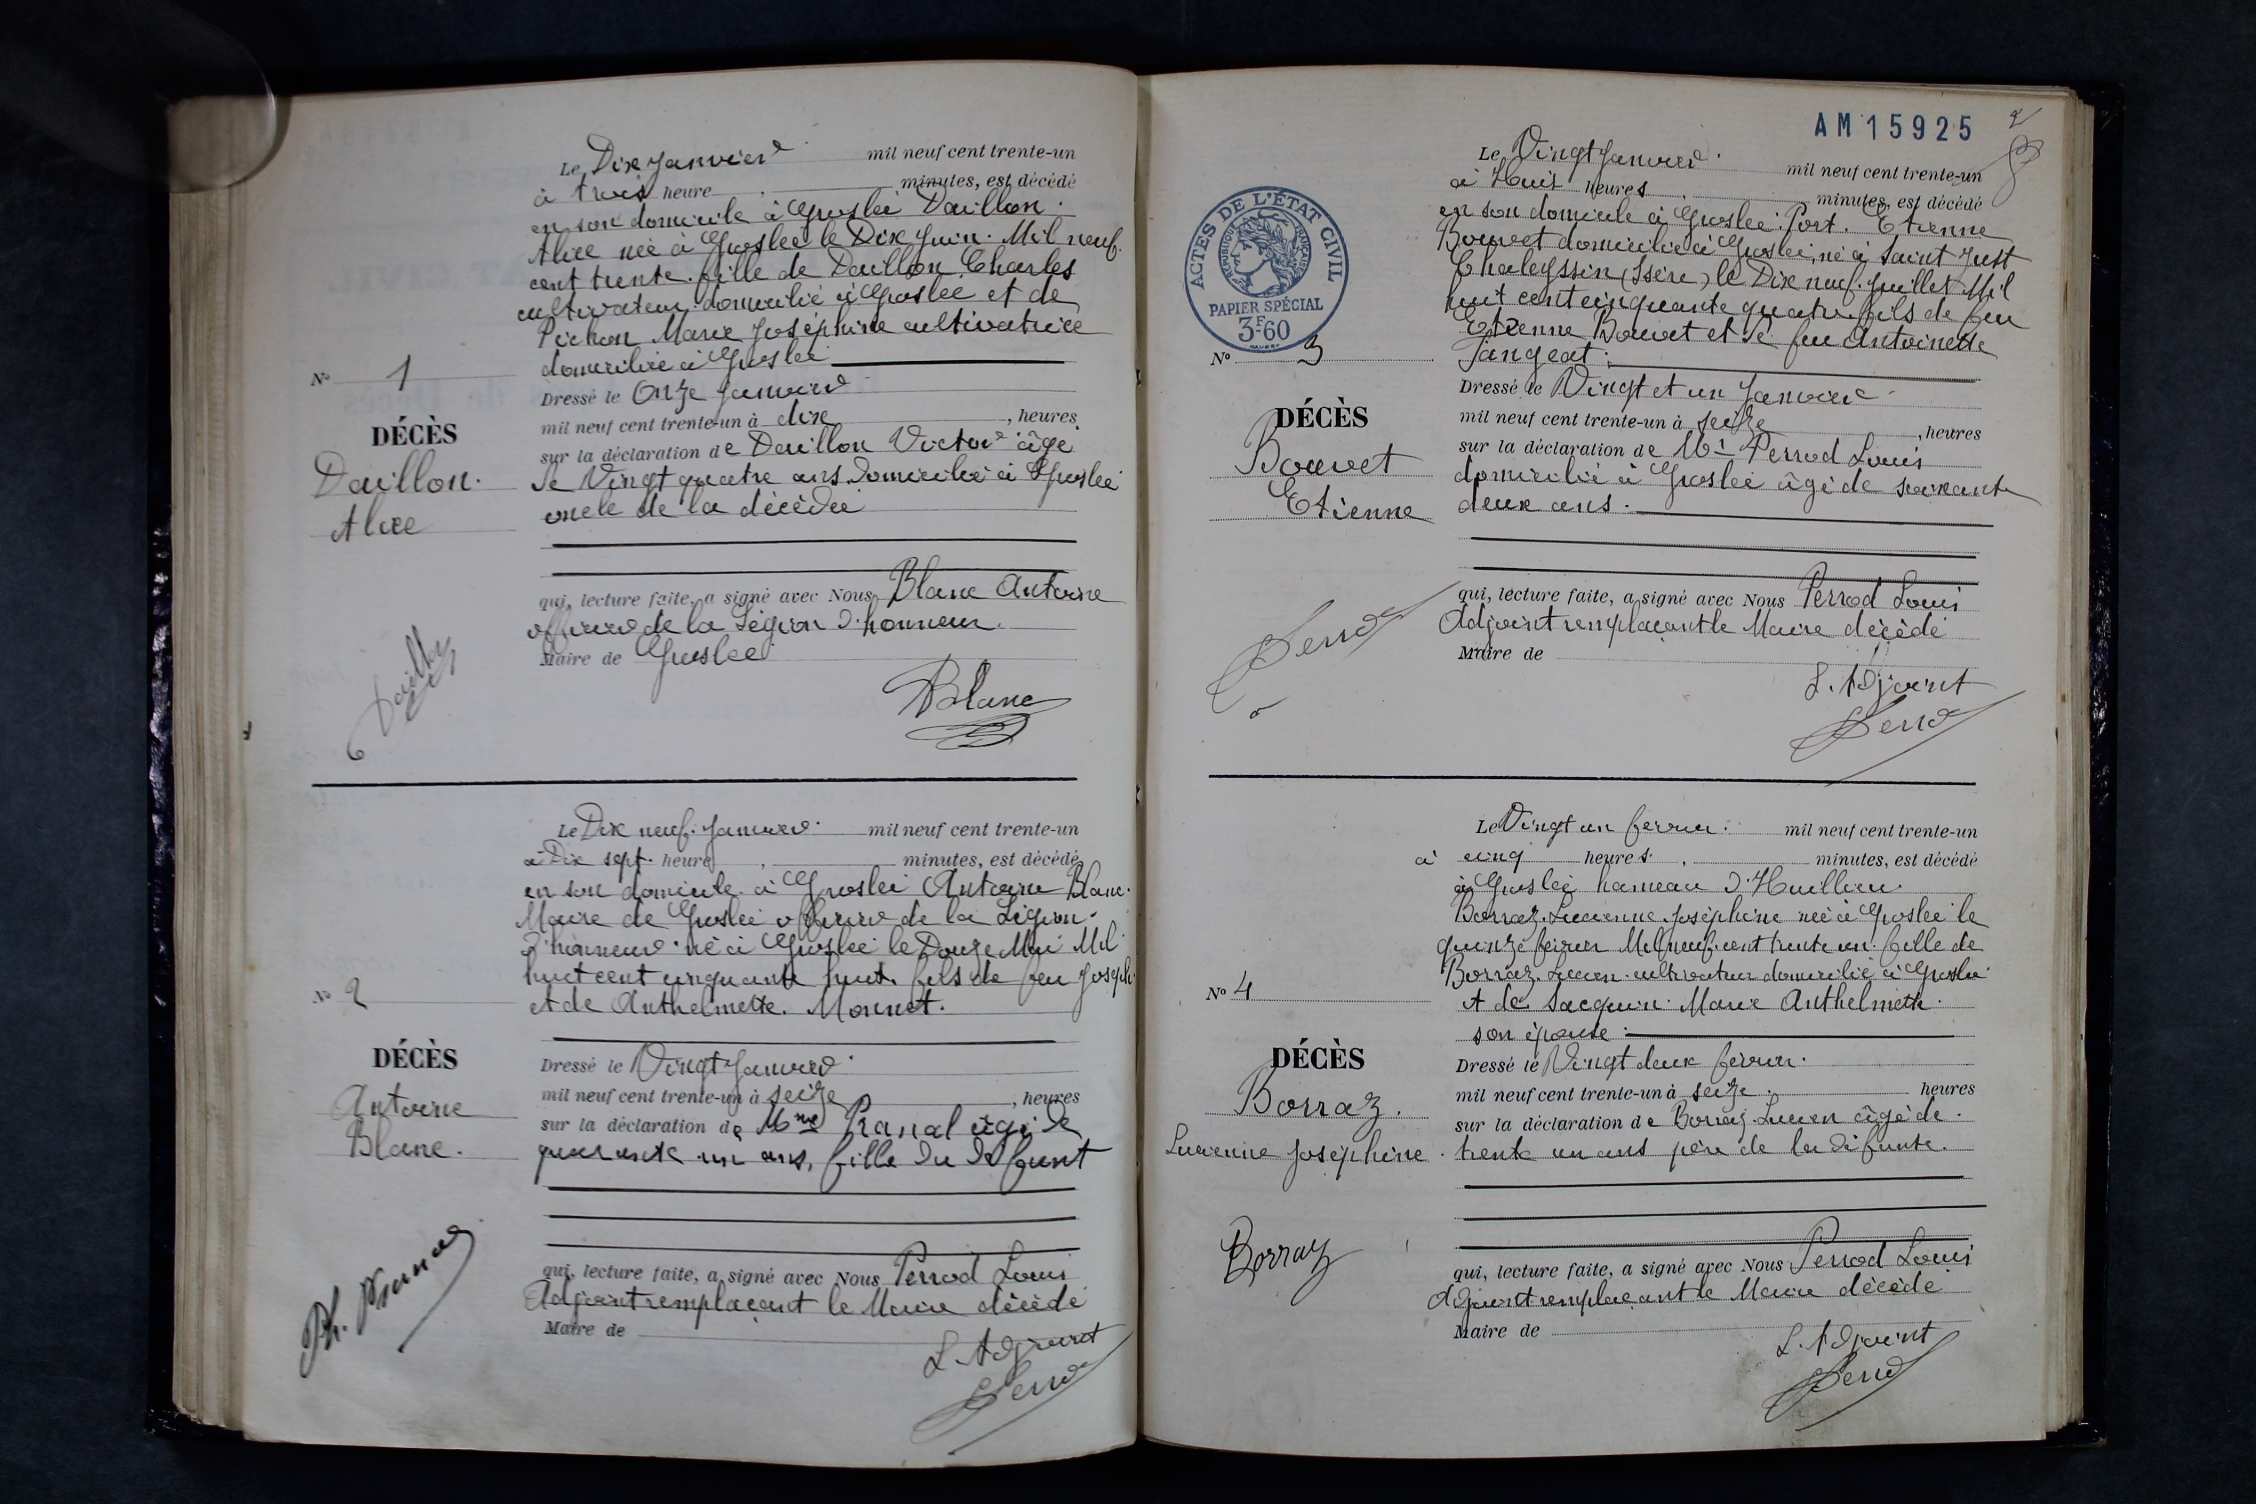 Le Dix Janvier mil neuf cent trente-un
à trois heure minutes, est décédé
en son domicile à Groslée Douillon
Alice née à Groslée le Dix Juin Mil neuf
cent trente. fille de Douillon Charles
cultivateur domicilié à Groslée et de
Pichon Marie Joséphine cultivatrice
domiciliée à Groslée
No 1
DÉCÈS
Douillon.
Alice
Dressé le Onze Janvier
mil neuf cent trente-un à dix, heures
sur la déclaration de Douillon Victor âgé
de Vingt quatre ans domicilié à Groslée
oncle de la décédée
qui, lecture faite, a signé avec Nous Blanc Antoine
officier de la Légion d'honneur.
Maire de Groslée
Blanc
Le Dix neuf. Janvier. mil neuf cent trente-un
à Dix sept. heure minutes, est décédé
en son domicile à Groslée Antoine Blanc.
Maire de Groslée officier de la Légion
d'honneur né à Groslée le Douze Mai Mil
huit cent cinquante huit. fils de feu Joseph
et de Anthelmette. Monnet.
No 2
DÉCÈS
Antoine
Blanc.
Dressé le Vingt Janvier.
mil neuf cent trente-un à seize, heures
sur la déclaration de Mme Pranal âgé de
quarante un ans, fille du défunt
qui, lecture faite, a signé avec Nous Perrod Louis
Adjoint remplaçant le Maire décédé
Maire de
L. Adjoint
Perrod
AM15925
2
Le Vingt Janvier. mil neuf cent trente-un
à Huit heures minutes, est décédé
en son domicile à Groslée. Port. Etienne
Bouvet domicilié à Groslée, né à Saint Just
Chaleyssin (Isère) le Dix neuf. Juillet Mil
huit cent cinquante quatre. fils de feu
Etienne Bouvet et de feu Antoinette
Jangeat.
ACTES DE L'ÉTAT CIVIL
RÉPUBLIQUE FRANÇAISE
PAPIER SPÉCIAL
3F60
No 3
DÉCÈS
Bouvet
Etienne
Dressé le Vingt et un Janvier
mil neuf cent trente-un à seize, heures
sur la déclaration de Mr Perrod Louis
domicilié à Groslée âgé de soixante
deux ans.
qui, lecture faite, a signé avec Nous Perrod Louis
Adjoint remplaçant le Maire décédé
Maire de
Perrod
L. Adjoint
Perrod
Le Vingt un fevrier. mil neuf cent trente-un
à cinq heures. minutes, est décédé
à Groslée hameau d'Huillieu.
Borraz. Lucienne Joséphine née à Groslée le
quinze février Mil neuf cent trente un. fille de
Borraz. Lucien. cultivateur domicilié à Groslée
et de Jacquin. Marie Anthelmette.
son épouse.
No 4
DÉCÈS
Borraz.
Lucienne Joséphine.
Dressé le Vingt deux fevrier.
mil neuf cent trente-un à seize. heures
sur la déclaration de Borraz Lucien âgé de.
trente un ans père de la défunte.
Borraz
qui, lecture faite, a signé avec Nous Perrod Louis
Adjoint remplaçant le Maire décédé
Maire de
L. Adjoint
Perrod